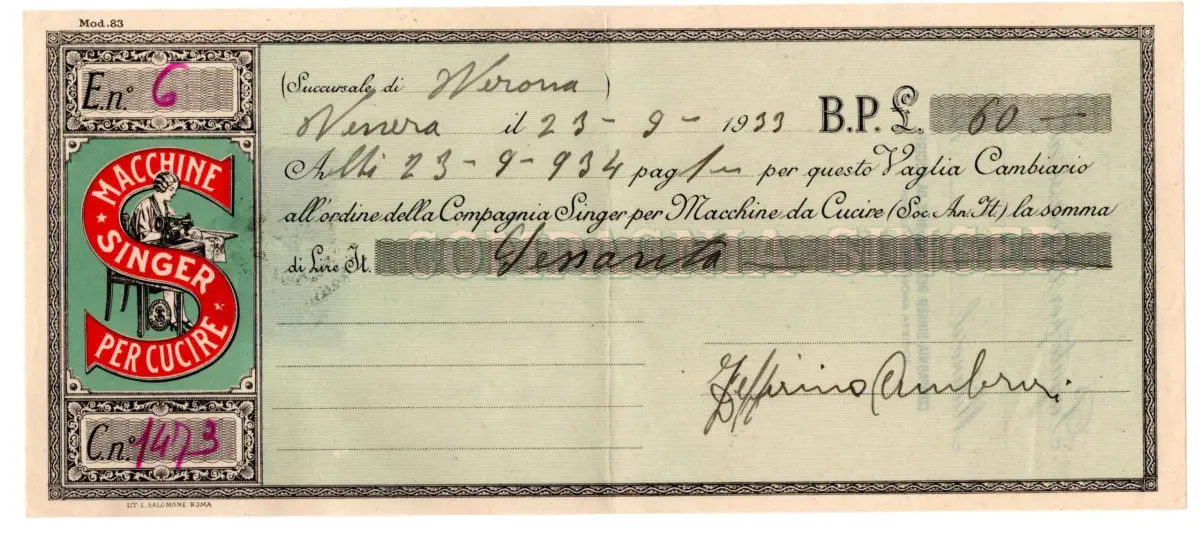 Mod.83
E.n.° 6
MACCHINE
SINGER
PER CUCIRE
C.n.° 1473
LIT L. SALOMONE ROMA
(Succursale di Verona)
il 23-9-1933 B.P.£. 60 —
Alli 23-9-934 pag per questo Vaglia Cambiario
all'ordine della Compagnia Singer per Macchine da Cucire (Soc. An. It.) la somma
COMPAGNIA SINGER
di Lire It. Sessanta
Zeffirino